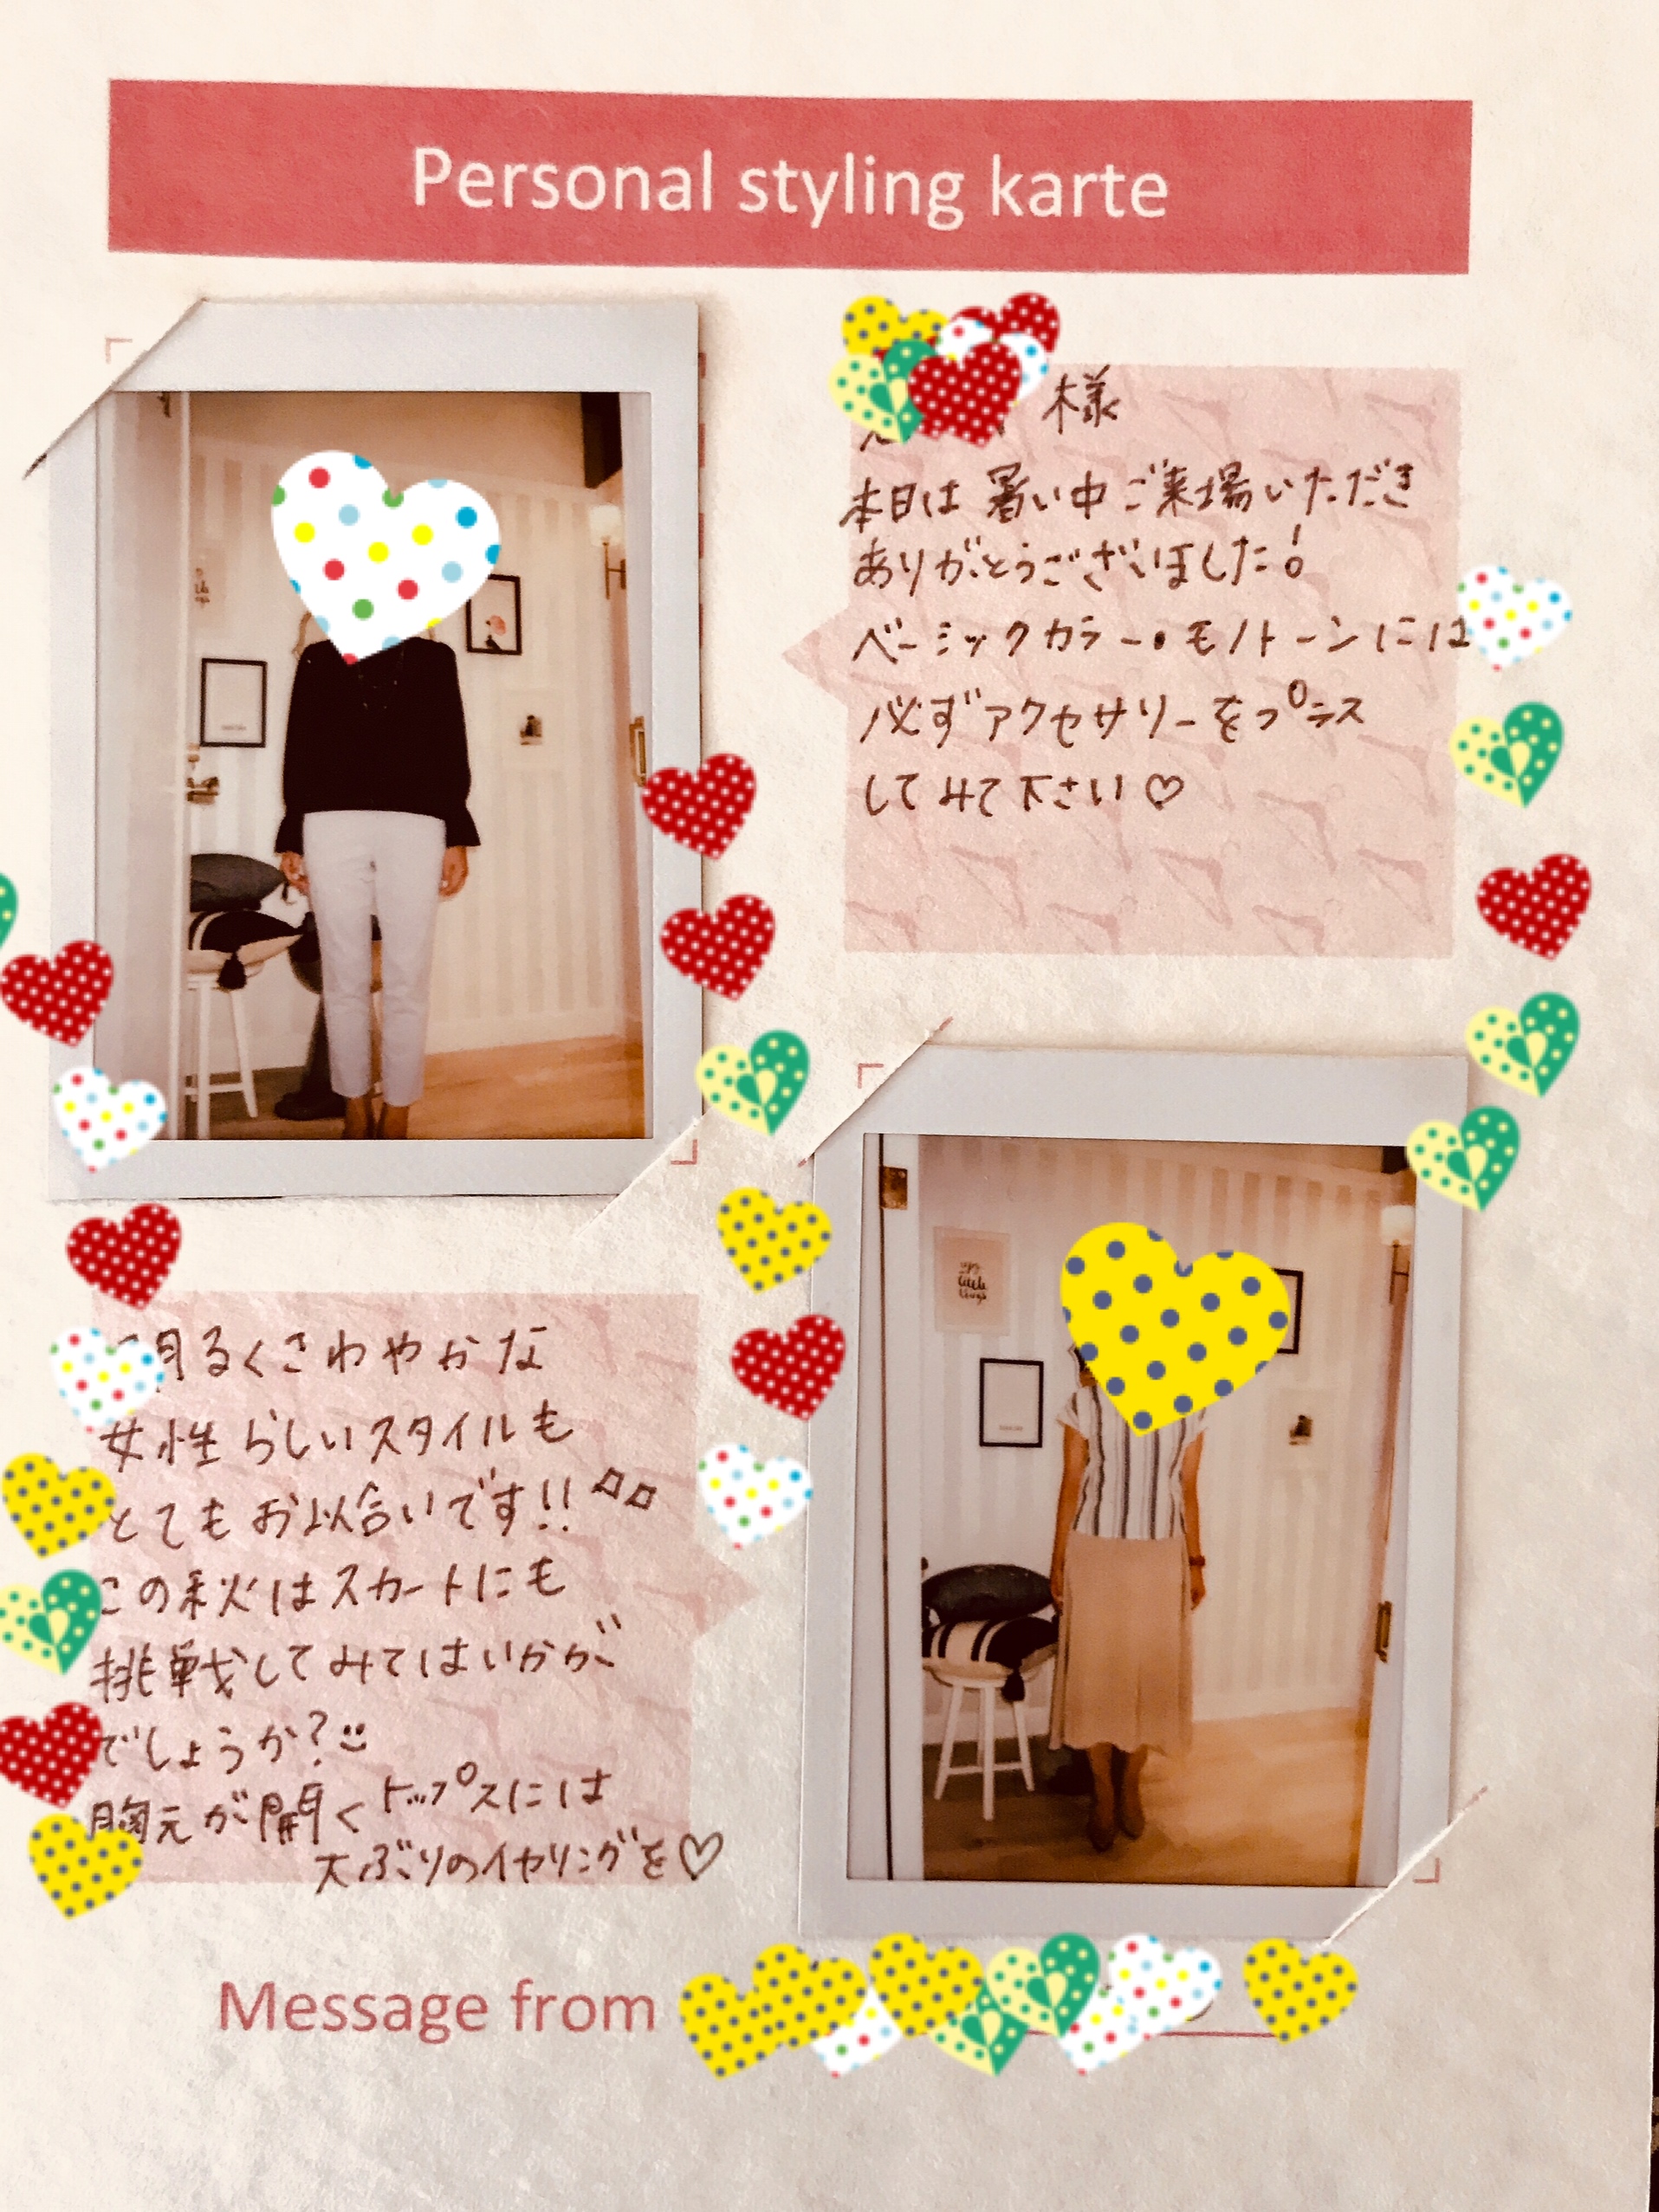 Personal styling karte
様
本日は暑い中ご来場いただき
ありがとうございました!
ベーシックカラー・モノトーンには
必ずアクセサリーをプラス
してみて下さい♡
明るくさわやかな
女性らしいスタイルも
とてもお似合いです!!
この秋はスカートにも
挑戦してみてはいかが
でしょうか?
胸元が開くトップスには
大ぶりのイヤリングを♡
little
things
Message from